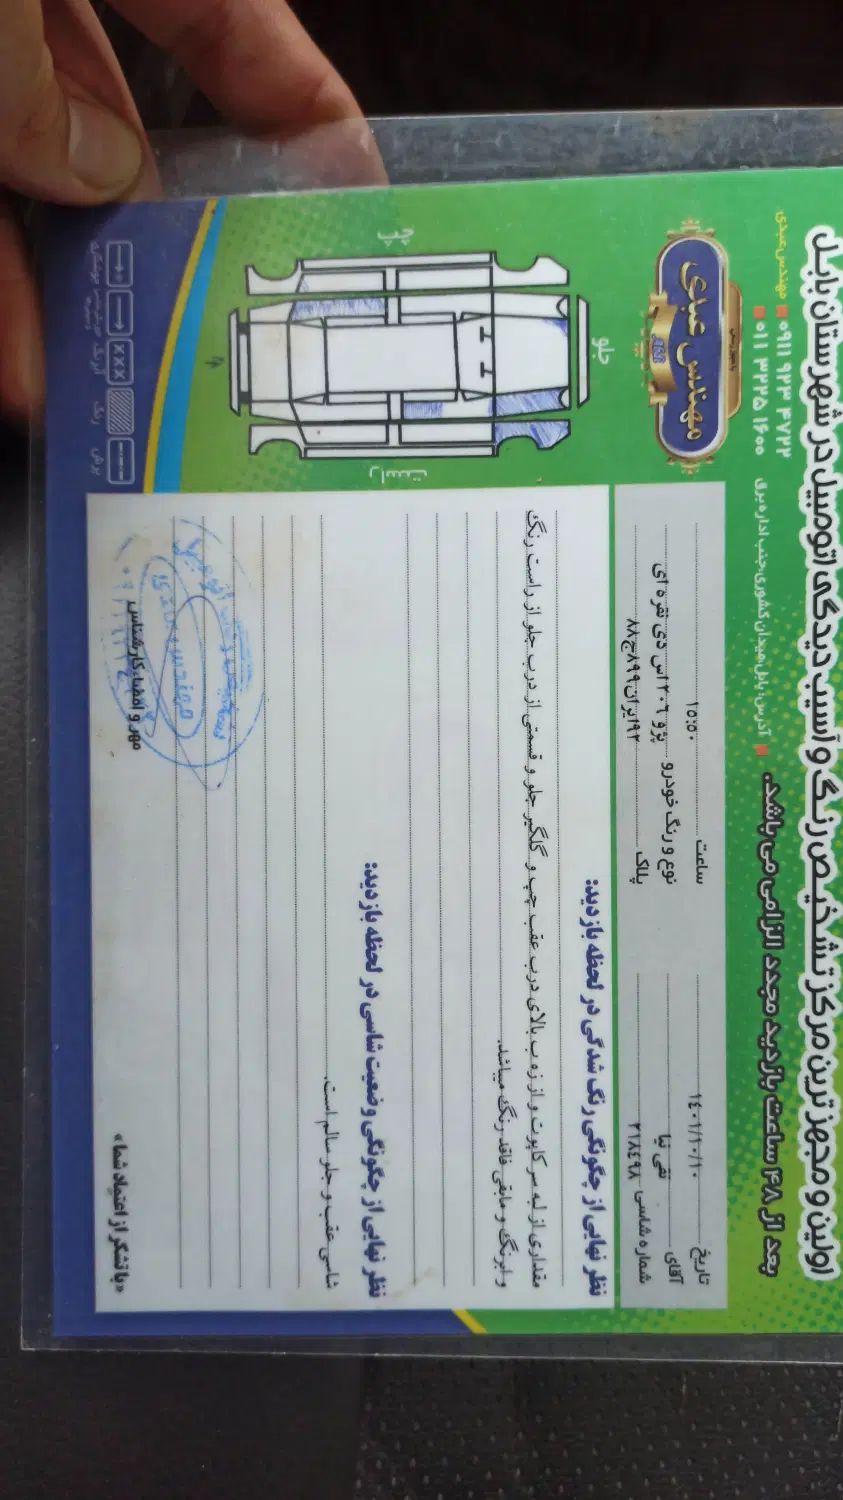 اولین و مجهزترین مرکز تشخیص رنگ و آسیب دیدگی اتومبیل در شهرستان بابل
بعد از ۴۸ ساعت بازدید مجدد الزامی می باشد.
مهندس عبدی ۰۹۱۱ ۹۲۳ ۴۷۲۲
۰۱۱ ۳۲۲۵ ۱۶۰۰
آدرس: بابل، میدان کشوری، جنب اداره برق
مهندس عبدی
تاریخ ۱۴۰۱/۱۰/۱۰ ساعت ۱۵:۵۰
آقای تقی نیا نوع و رنگ خودرو پژو ۲۰۶ اس دی نقره ای
شماره شاسی ۲۱۸۴۹۸ پلاک ۹۲ایران۸۹۹ج۸۸
جلو
چپ
راست
نظر نهایی از چگونگی رنگ شدگی در لحظه بازدید:
مقداری از لبه سر کاپوت و از زه ب بالای درب عقب چپ و گلگیر جلو و قسمتی از درب جلو از راست رنگ
و ابرنگ و مابقی فاقد رنگ میباشد.
نظر نهایی از چگونگی وضعیت شاسی در لحظه بازدید:
شاسی عقب و جلو سالم است.
مهر و امضاء کارشناس
«با تشکر از اعتماد شما»
برش
رنگ
آبرنگ
xxx